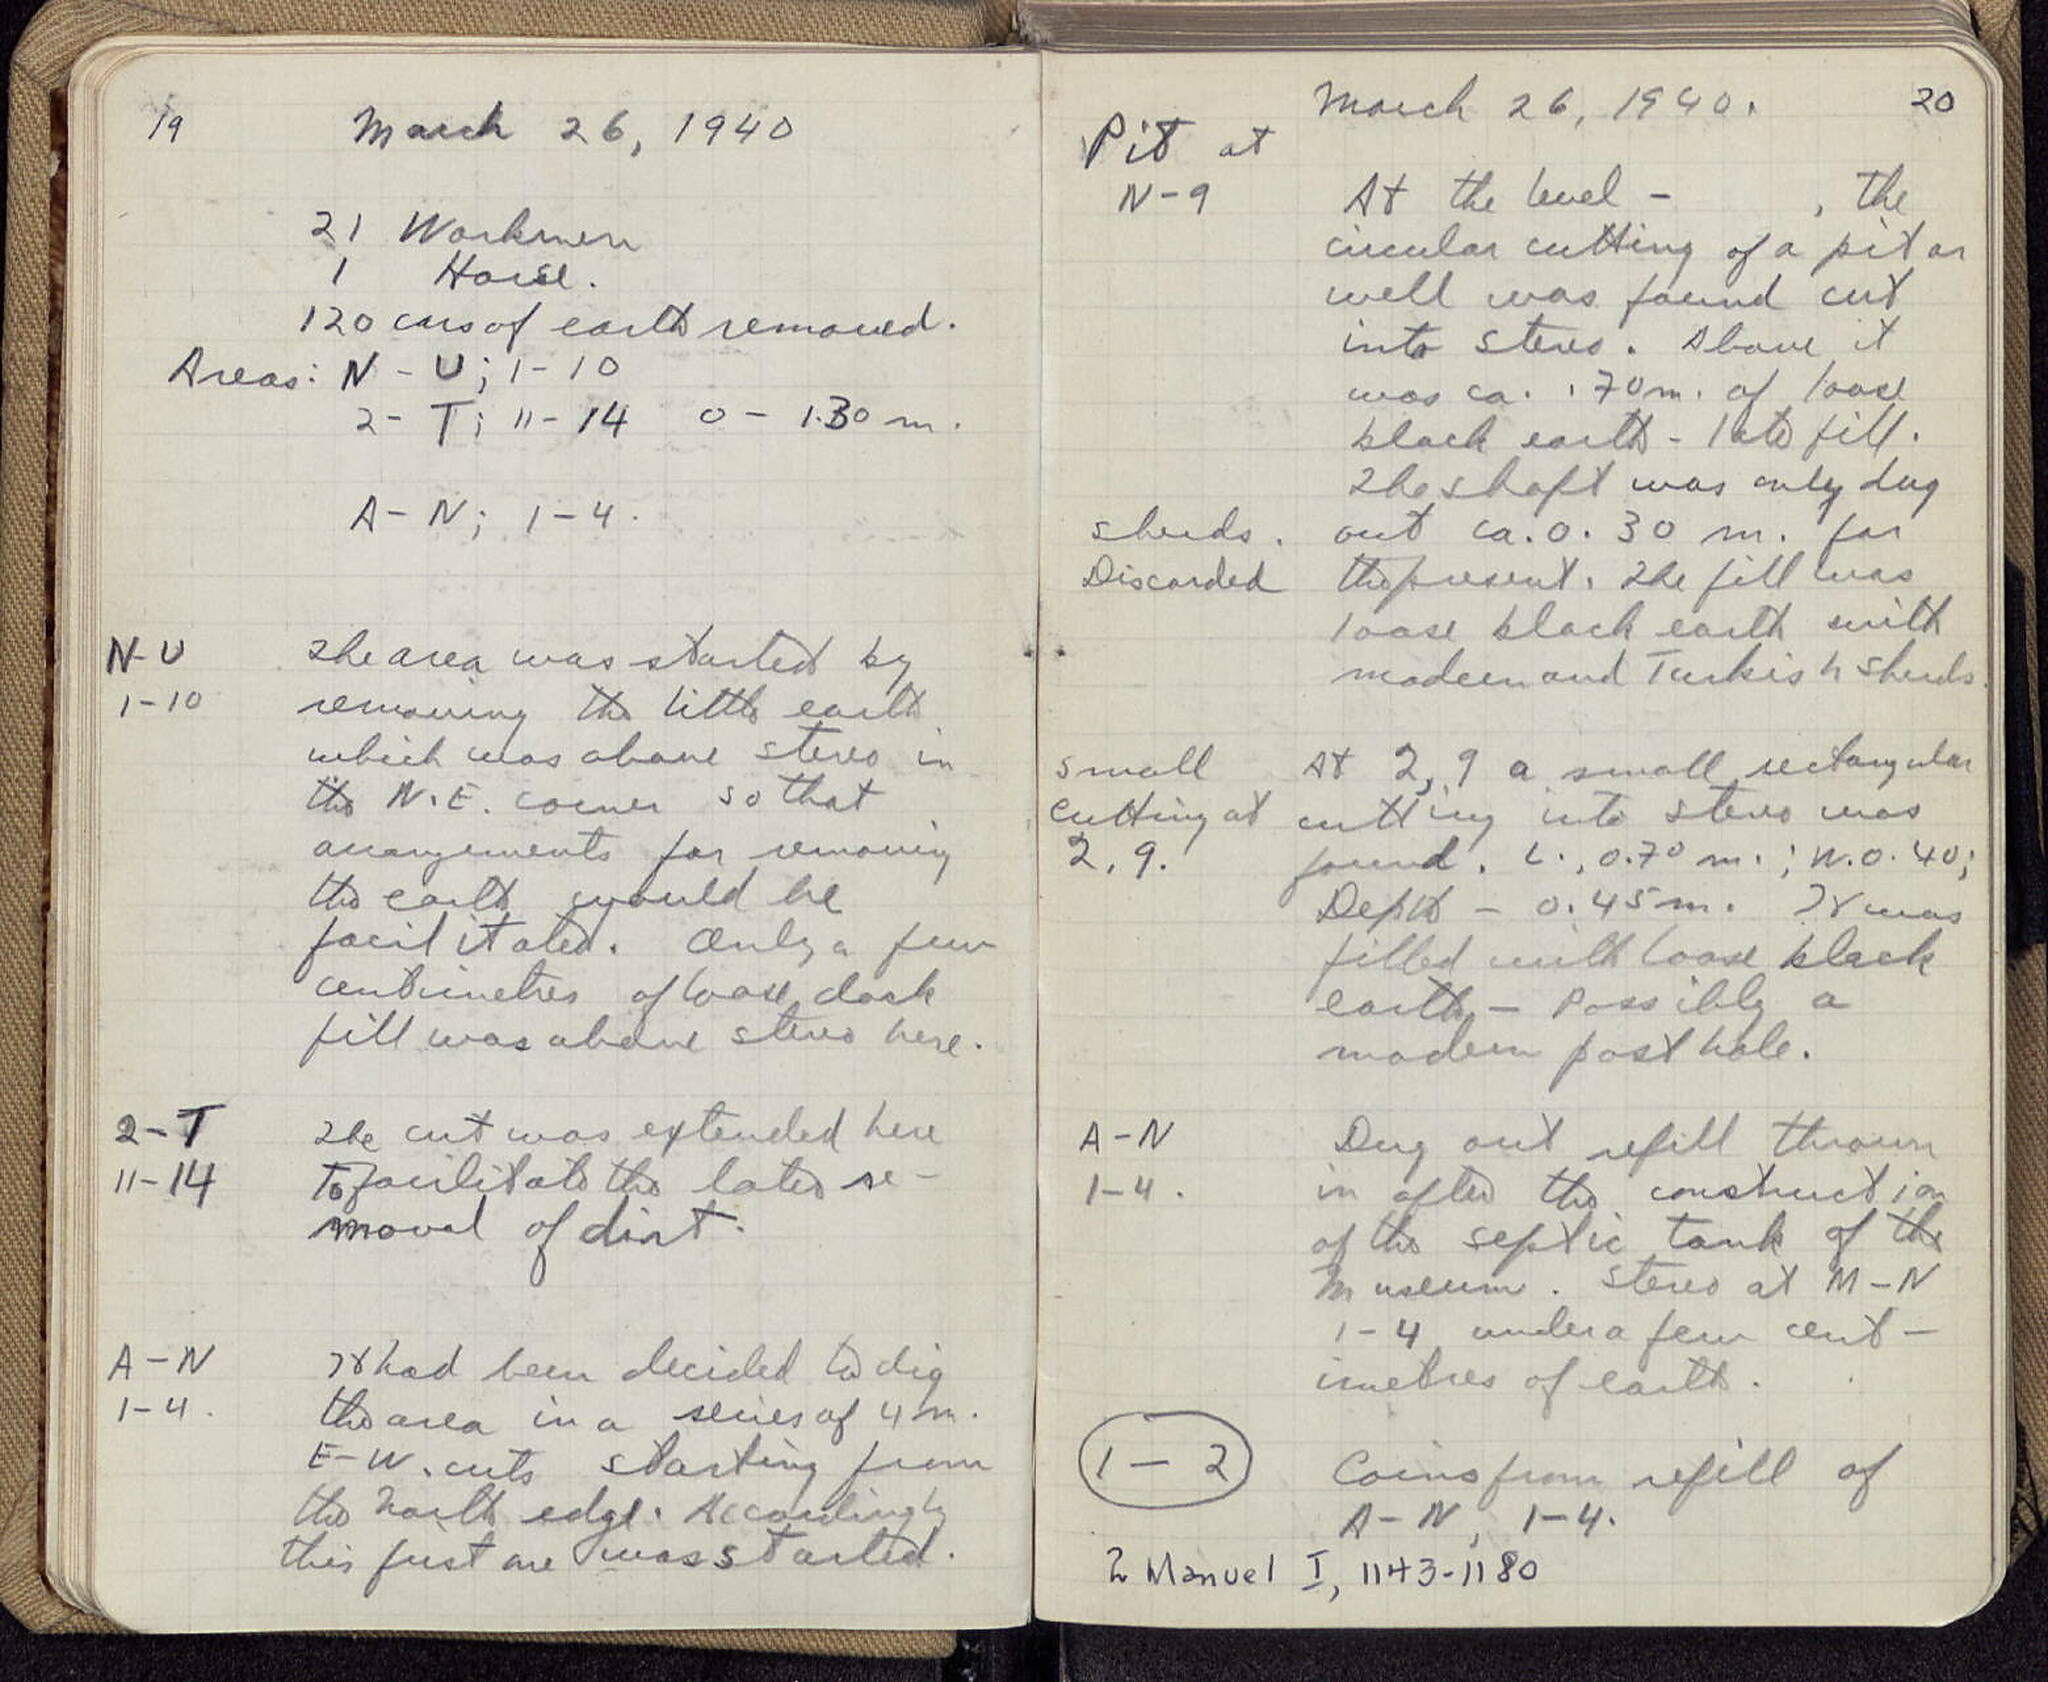 19
March 26, 1940
21 Workmen
1 Horse.
120 cars of earth removed.
Areas: N - U; 1-10
2- T; 11-14 0 - 1.30 m.
A- N; 1-4.
N-U
1-10
The area was started by
removing the little earth
which was above stereo in
the N.E. corner so that
arrangements for removing
the earth would be
facilitated. Only a few
centimetres of loose dark
fill was above stereo here.
2-T
11-14
The cut was extended here
To facilitate the later re-
moval of dirt.
A-N
1-4.
It had been decided to dig
the area in a series of 4 m.
E-W. cuts starting from
the North edge. Accordingly
this first one was started.
March 26, 1940.
20
Pit at
N-9
At the level - , the
circular cutting of a pit or
well was found cut
into stereo. Above it
was ca. .70m. of loose
black earth - late fill.
The shaft was only dug
out ca. 0.30 m. for
the present. The fill was
loose black earth with
modern and Turkish sherds.
Sherds.
Discarded
Small
Cutting at
2, 9.
At 2, 9 a small rectangular
cutting into stereo was
found. L., 0.70 m.; W. 0.40;
Depth - 0.45 m. It was
filled with loose black
earth - Possibly a
modern post hole.
A-N
1-4.
Dug out refill thrown
in after the construction
of the septic tank of the
Museum. Stereo at M-N
1-4 under a few cent-
imetres of earth.
1-2
Coins from refill of
A-N, 1-4.
2 Manuel I, 1143-1180